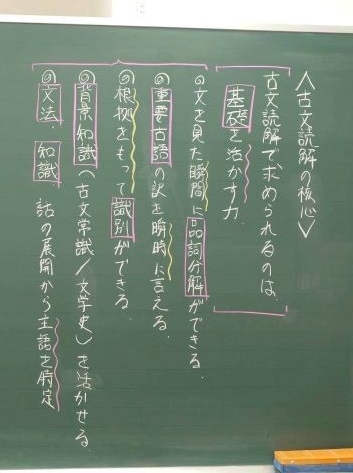 <古文読解の核心>
古文読解で求められるのは、
基礎を活かす力。
の文を見た瞬間に品詞分解ができる。
の重要古語の訳を瞬時に言える。
の根拠をもって識別ができる。
の背景知識(古文常識/文学史)を活かせる
の文法、知識 話の展開から主語を特定